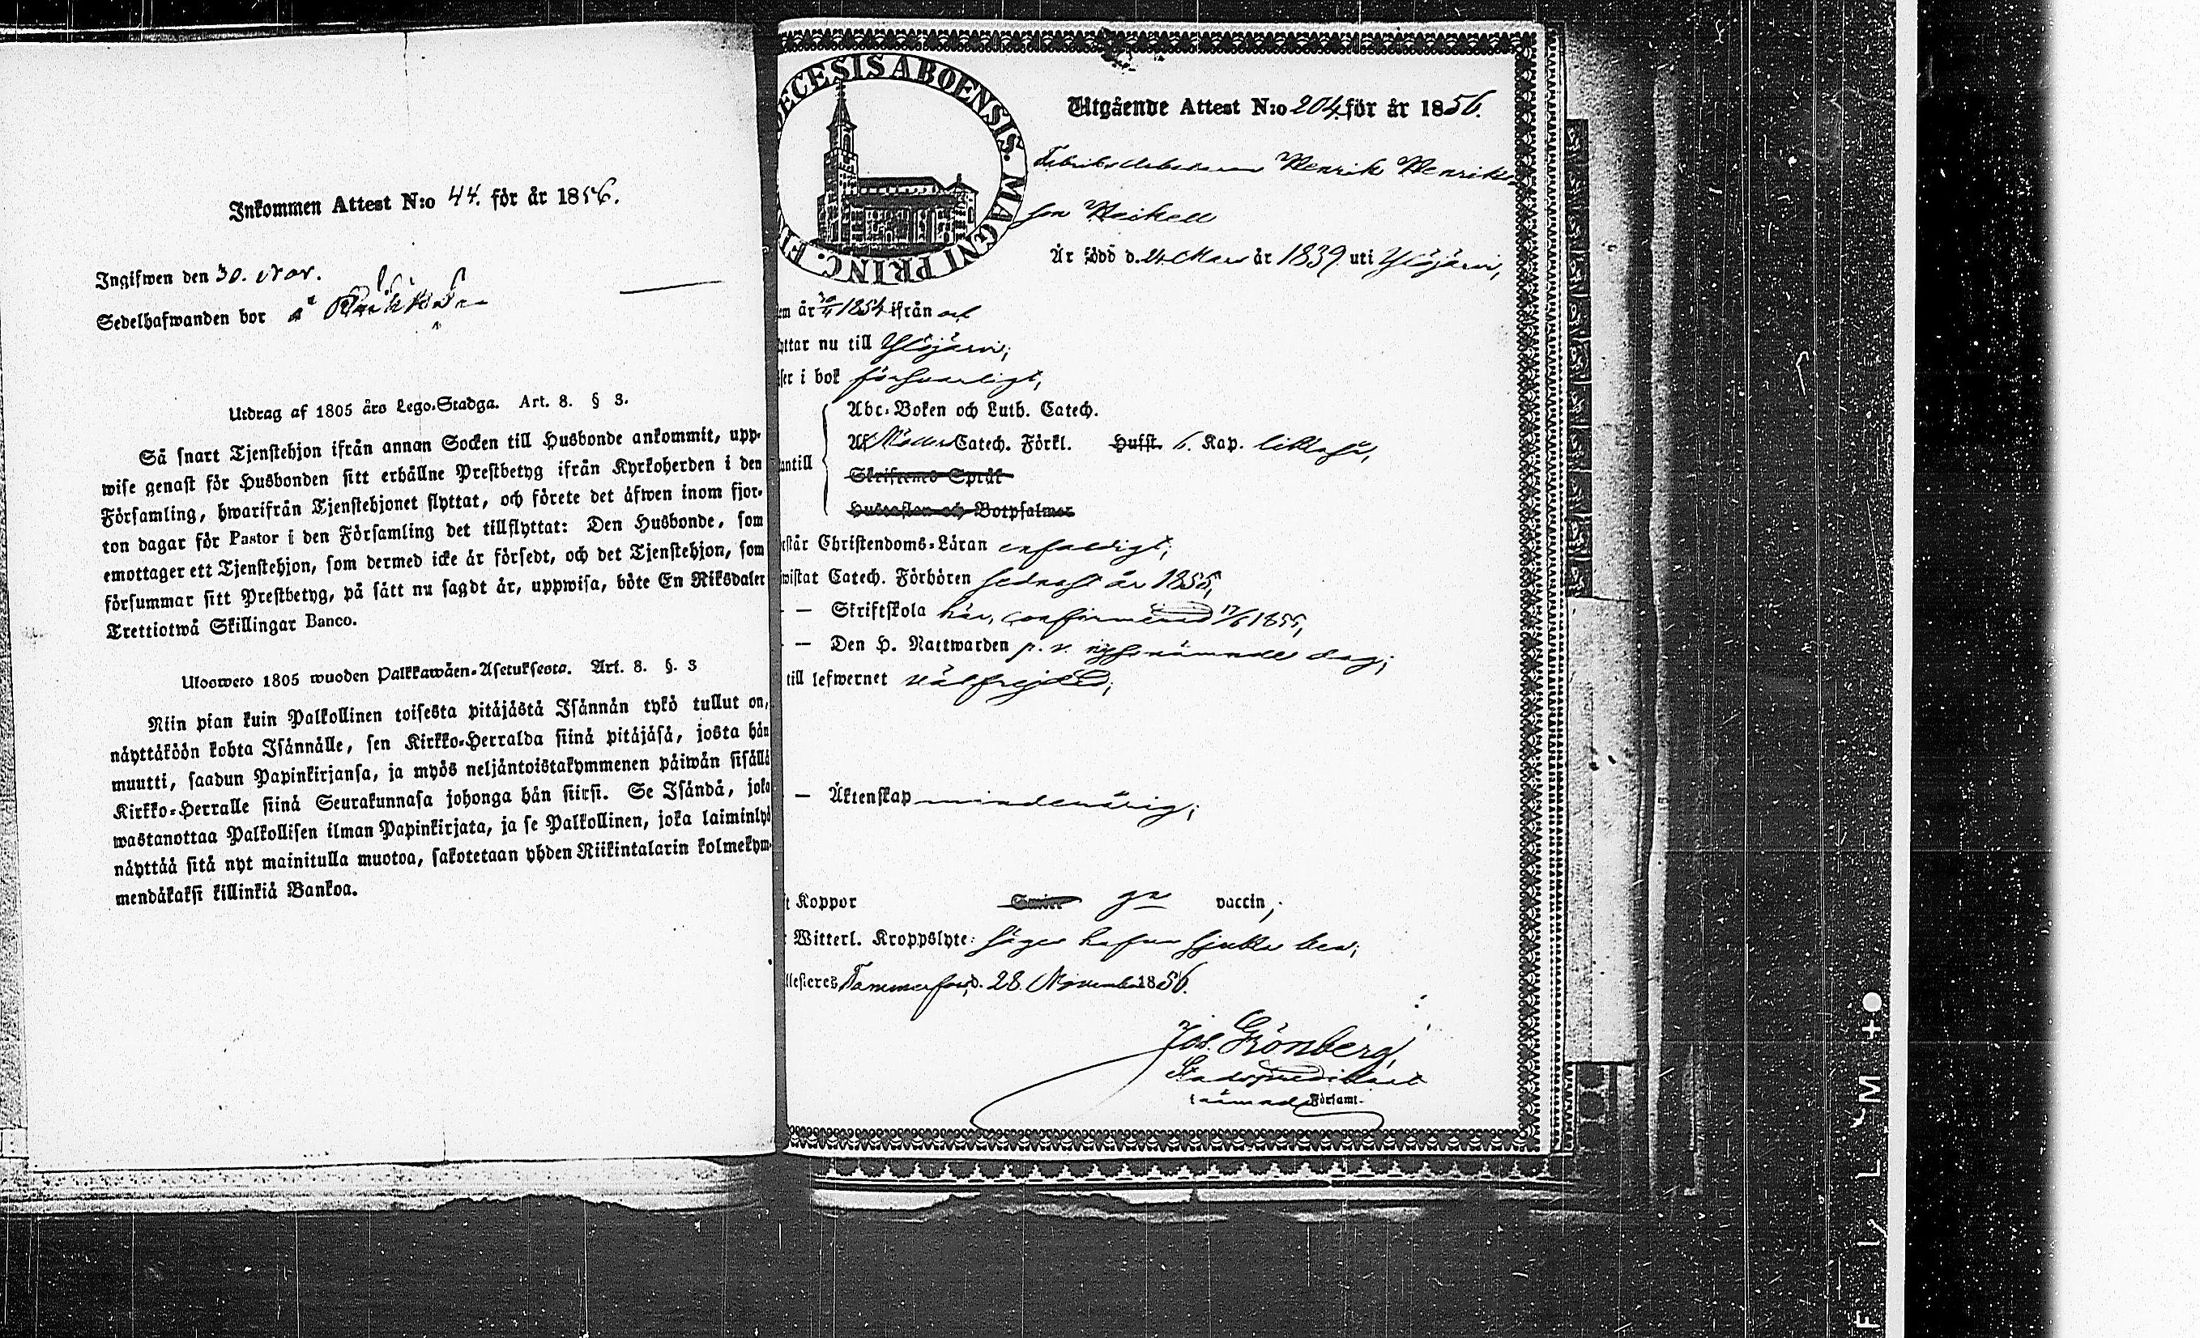 Inkommen Attest N:o 44. för år 1856.
Ingifwen den 30. Nov.
Sedelhafwanden bor å
Utdrag af 1805 års Lego-Stadga. Art. 8. § 3.
Så snart Tjenstehjon ifrån annan Socken till Husbonde ankommit, upp-
wise genast för Husbonden sitt erhållne Prestbetyg ifrån Kyrkoherden i den
Församling, hwarifrån Tjenstehjonet flyttat, och förete det äfwen inom fjor-
ton dagar för Pastor i den Församling det tillflyttat: Den Husbonde, som
emottager ett Tjenstehjon, som dermed icke är försedt, och det Tjenstehjon, som
försummar sitt Prestbetyg, på sätt nu sagdt är, uppwisa, böte En Riksdaler
Trettiotwå Skillingar Banco.
Ulosweto 1805 wuoden Palkkawäen-Asetuksesta. Art. 8. §. 3
Niin pian kuin Palkollinen toisesta pitäjästä Isännän tykö tullut on,
näyttäköön kohta Isännälle, sen Kirkko-Herralda siinä pitäjäsä, josta hän
muutti, saadun Papinkirjansa, ja myös neljäntoistakymmenen päiwän sisällä
Kirkko-Herralle siinä Seurakunnasa johonga hän siirsi. Se Isändä, joka
wastanottaa Palkollisen ilman Papinkirjata, ja se Palkollinen, joka laiminlyö
näyttää sitä nyt mainitulla muotoa, sakotetaan yhden Riikintalarin kolmekym-
mendäkaksi killinkiä Bankoa.
ECESIS ABOENSIS. MAGNI PRINC. FI
Utgående Attest N:o 204. för år 1856.
Fabriksarbetaren Henrik Henriks-
son Heikell
Är född d. 24 Mars år 1839 uti Ylöjärvi,
em år 1854 ifrån
yttar nu till Ylöjärvi;
ser i bok försvarligt,
Abc-Boken och Luth. Catech.
Catech. Förkl. Hufst. 6. Kap. likaså,
antill
Skriftenes Språk
Hustaflan och Botpsalmer
rstår Christendoms-Läran enfaldigt;
wistat Catech. Förhören sednast år 1855,
— Skriftskola här, confirmerad 17/6 1855,
— Den H. Nattwarden p. v. nyssnämnde dag;
till lefwernet välfrejdad;
— Äktenskap minderårig;
t Koppor vaccin,
Witterl. Kroppslyte: säges hafva sjukla ben;
llesteres Tammerfors d. 28. November 1856.
Jos. Grönberg,
Stadspredikant
i nämnde Församl.
F I L M